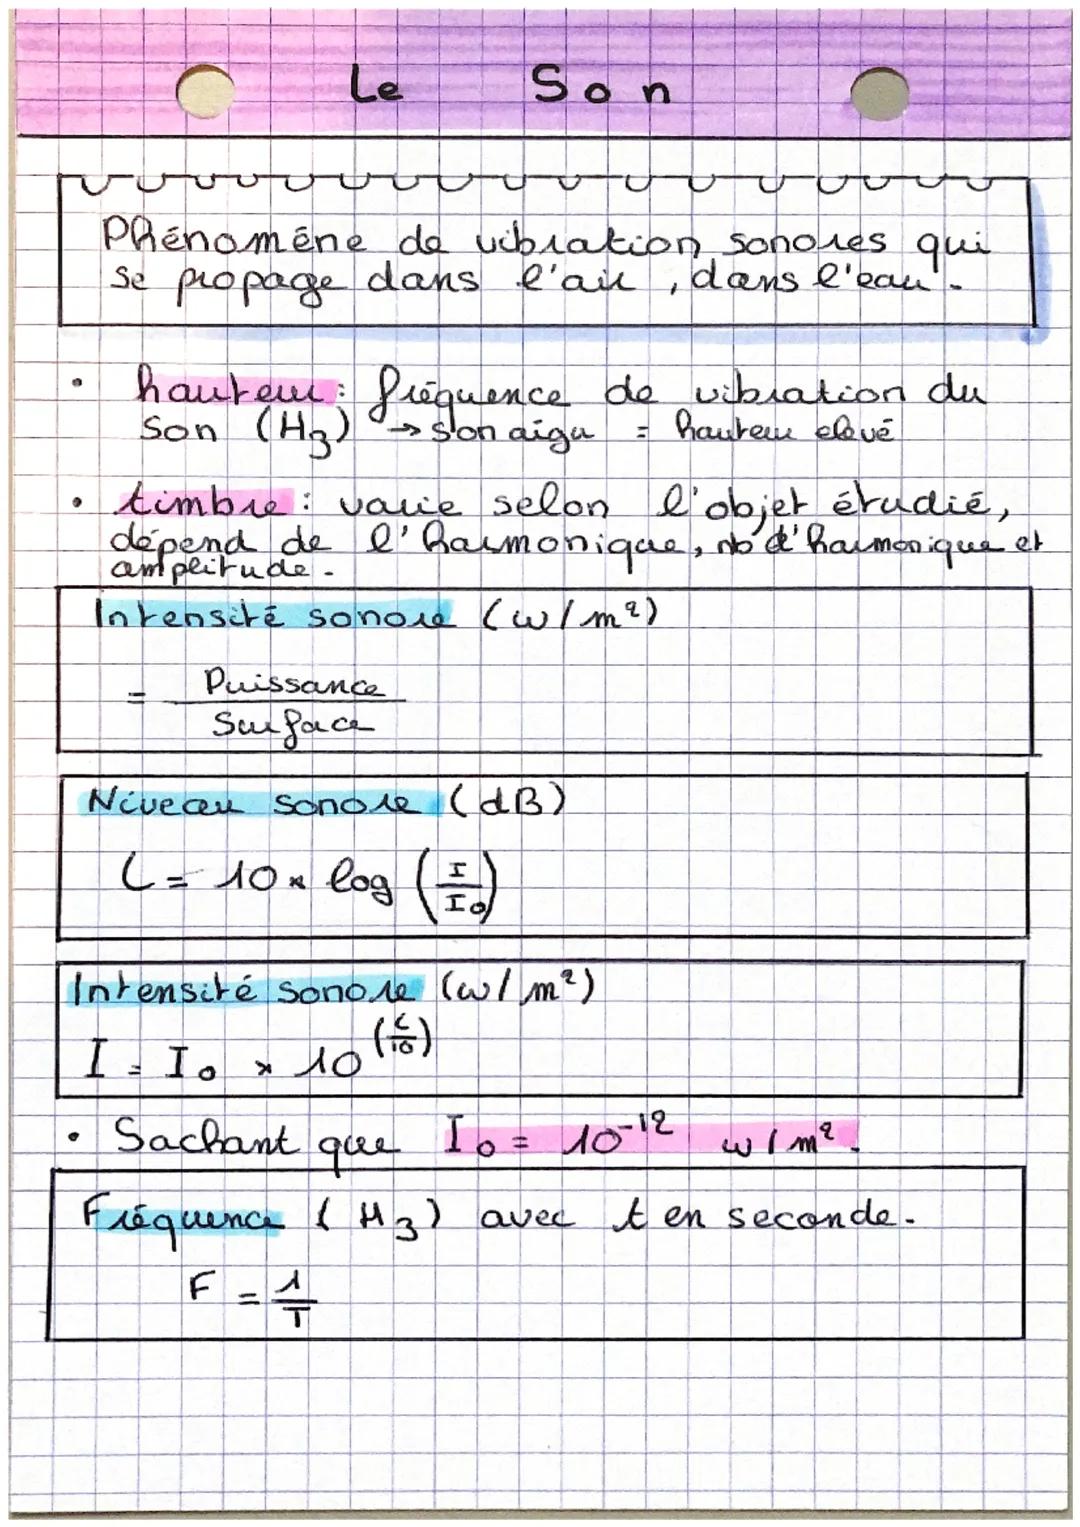 Le Son
Phénoméne de vibration sonores qui
se propage dans l'air, dans l'eau.
• hauteur : fréquence de vibration du
son (Hz) → son aigu = hauteur elevé
• timbre : varie selon l'objet étudié,
dépend de l'harmonique, nb d'harmonique et
amplitude.
Intensité sonore (w/m²)
= Puissance
Surface
Niveau sonore (dB)
L = 10 × log (I/I₀)
Intensité sonore (w/m²)
I = I₀ × 10^(L/10)
• Sachant que I₀ = 10⁻¹² w/m².
Fréquence (Hz) avec t en seconde.
F = 1/T